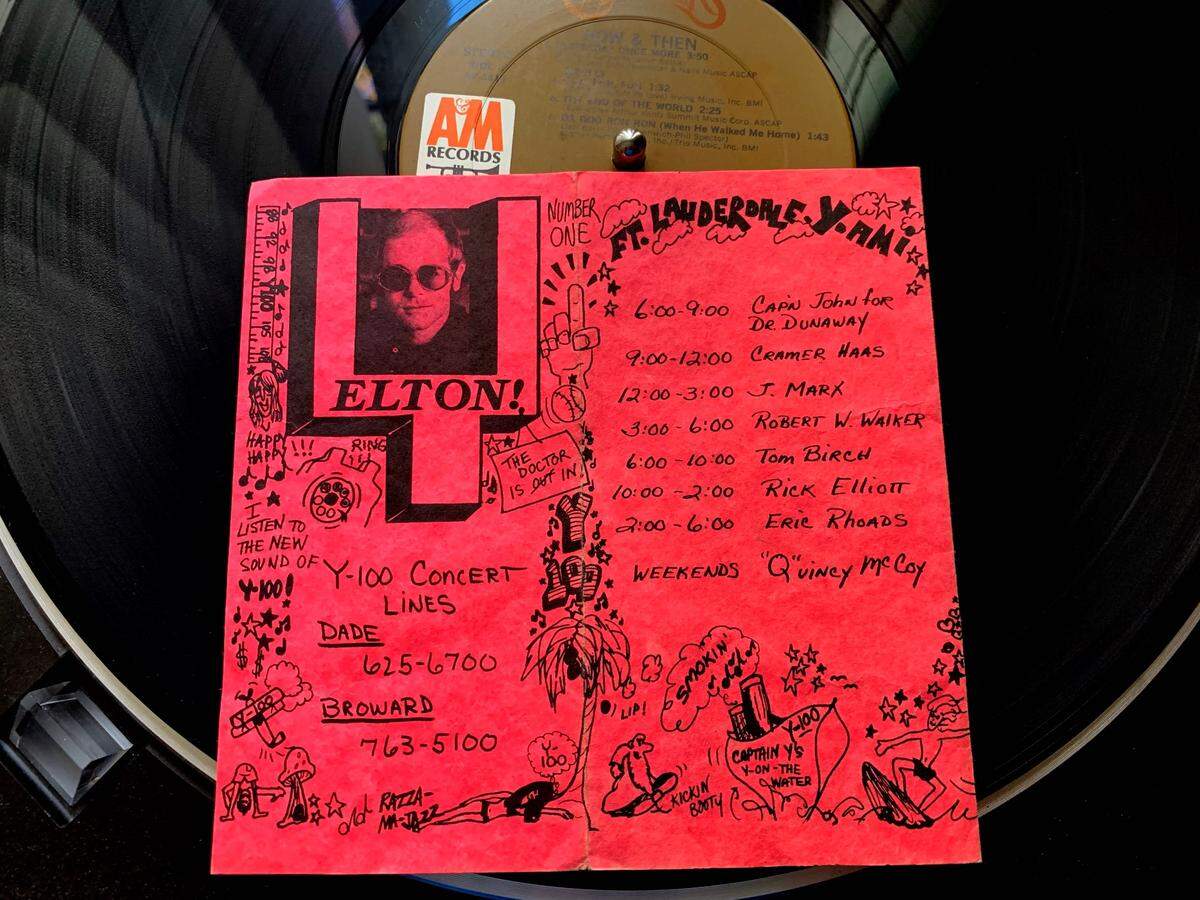 NOW & THEN
ONCE MORE 3:50
Music ASCAP
1:32
Irving Music, Inc. BMI
THE END OF THE WORLD 2:25
Summit Music Corp. ASCAP
DA DOO RON RON (When He Walked Me Home) 1:43
Phil Spector)
Inc./Trio Music, Inc. BMI
A&M
RECORDS
88 92 96 98 Y100 105 108
HAPPY
HAPPY
!!!
RING
!!!
I
LISTEN TO
THE NEW
SOUND OF
Y-100!
$ $
ELTON!
NUMBER
ONE
THE
DOCTOR
IS OUT IN!
Y
100
Y-100 CONCERT
LINES
DADE
625-6700
BROWARD
763-5100
RAZZA-
MA-JAZZ
Y-
100
FT. LAUDERDALE, Y.AMI!
6:00-9:00 CAP'N JOHN for
DR. DUNAWAY
9:00-12:00 CRAMER HAAS
12:00-3:00 J. MARX
3:00-6:00 ROBERT W. WALKER
6:00-10:00 TOM BIRCH
10:00-2:00 RICK ELLIOTT
2:00-6:00 ERIC RHOADS
WEEKENDS "Q"UINCY McCOY
SMOKIN'
LIP!
Y-100
CAPTAIN Y'S
Y-ON-THE
WATER
KICKIN
BOOTY